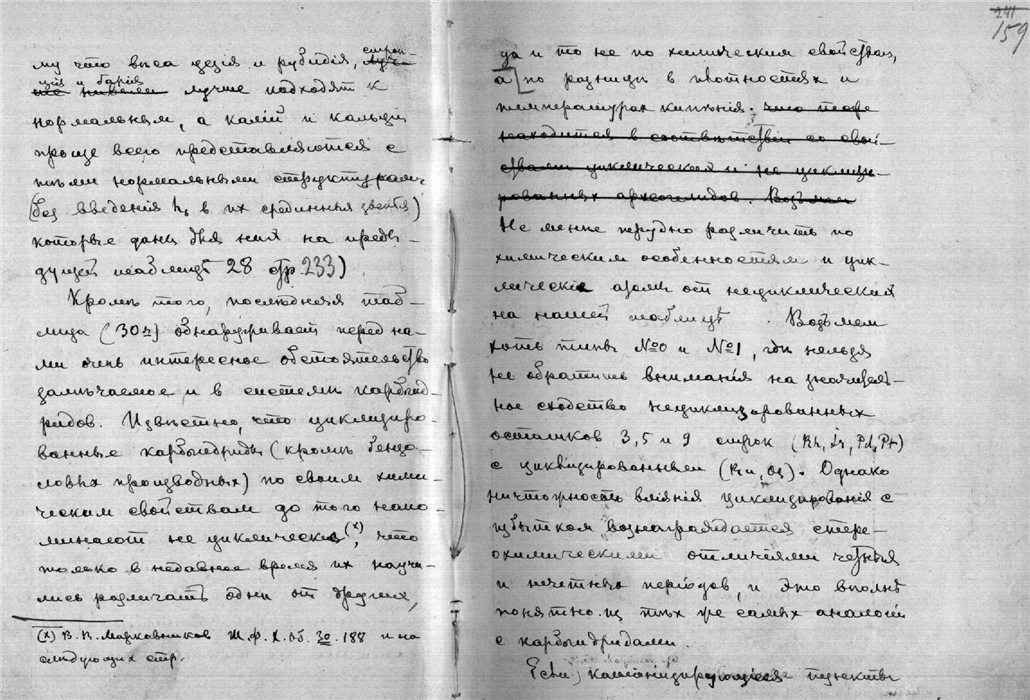 241
159
му что веса цезія и рубидія, строн-
ція и барія лучше подходят к
нормальным, а калій и кальцій
проще всего представляются с
тѣми нормальными структурами
(без введенія h, в их срединныя звенья)
которые даны для них на преды-
дущей таблицѣ 28 стр 233).
Кромѣ того, послѣдняя таб-
лица (30я) обнаруживает перед на-
ми очень интересное обстоятельство
замѣчаемое и в системѣ карбгид-
ридов. Извѣстно, что циклизиро-
ванные карбгидриды (кромѣ бензо-
ловых производных) по своим хими-
ческим свойствам до того напо-
минают не циклическія (х), что
только в недавнее время их научи-
лись различать одни от других,
(х) В. В. Марковников Ж. Ф. Х. Об. 30. 188 и на
слѣдующих стр.
да и то не по химическим свойствам,
а по разницѣ в плотностях и
температурах кипѣнія. что тоже
находится в соотвѣтствіи со свой-
ствами циклических и не циклизи-
рованных археогелидов. Возьмем
Не менѣе трудно различить по
химическим особенностям и цик-
лическія архи от нециклических
на нашей таблицѣ . Возьмем
хоть типы №0 и №1, гдѣ нельзя
не обратить вниманія на значитель-
ное сходство нециклизированных
остатков 3, 5 и 9 строк (Rh, Ir, Pd, Pt)
с циклизированными (Ru, Os). Однако
ничтожность вліянія циклизированія с
избытком вознаграждается стере-
охимическими отличіями четных
и нечетных періодов, и это вполнѣ
понятно из тѣх же самых аналогій
с карбгидридами.
Если, пункты